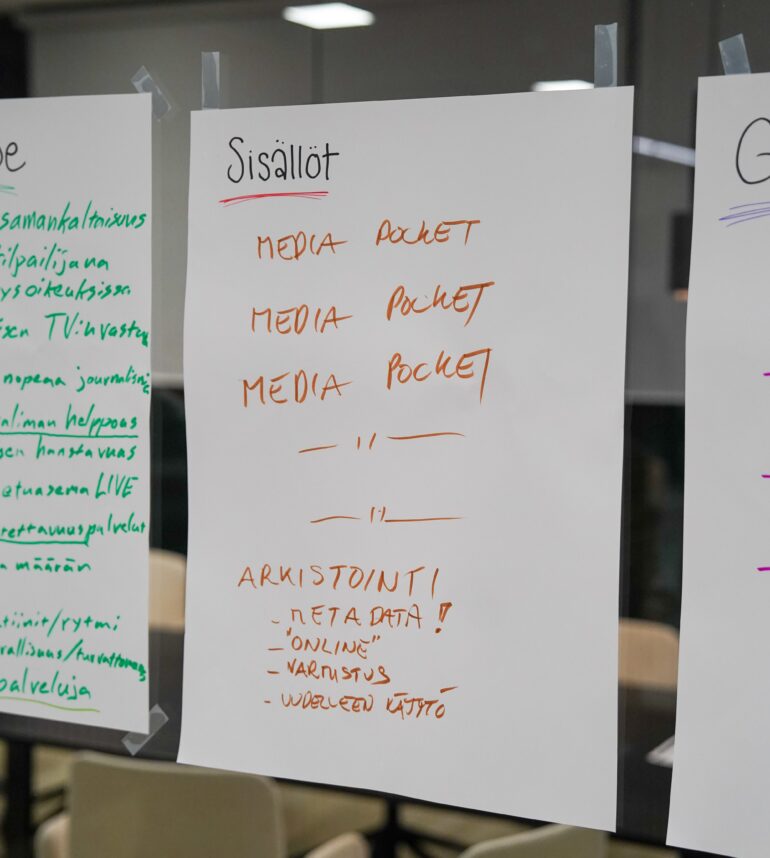 samankaltaisuus
ilpailijana
ysoikeuksissa
TV:n vastuu
nopeaa journalismi
helppous
haastavuus
LIVE
palvelut
määrän
tiinit/rytmi
rallisuus/turvattomuus
palveluja
Sisällöt
MEDIA POCKET
MEDIA POCKET
MEDIA POCKET
— 11 —
— 11 —
ARKISTOINTI
- METADATA!
- "ONLINE"
- VARMISTUS
- UUDELLEEN KÄYTTÖ
G